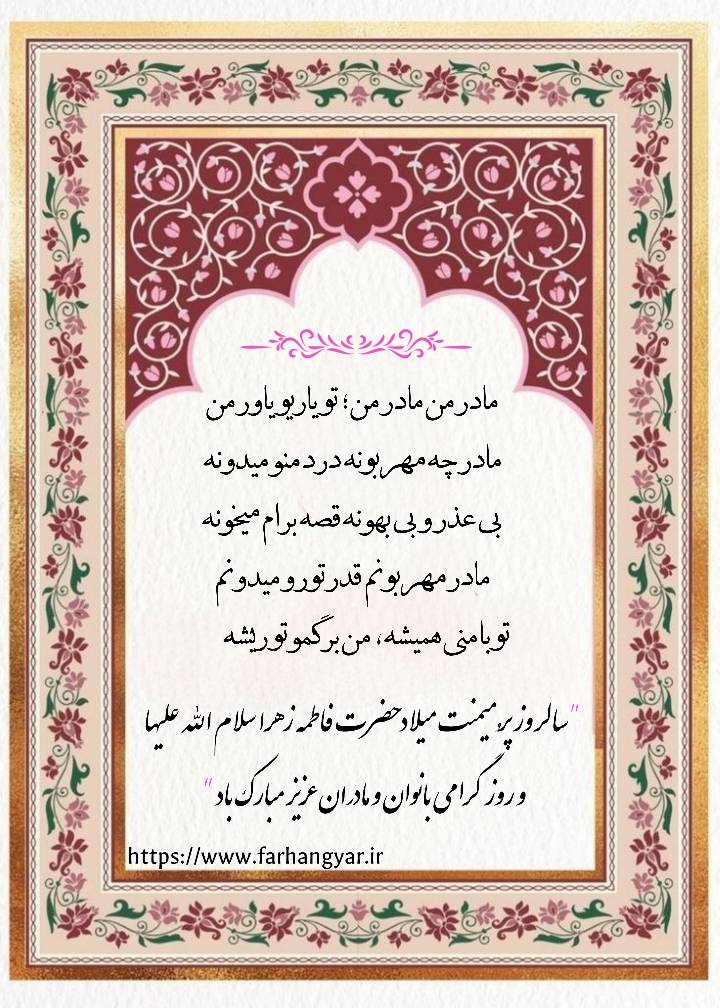 مادر من مادر من؛ تو یاریو یاور من
مادر چه مهربونه درد منو میدونه
بی عذر و بی بهونه قصه برام میخونه
مادر مهربونم قدر تورو میدونم
تو بامنی همیشه، من برگمو تو ریشه
"سالروز پر میمنت میلاد حضرت فاطمه زهرا سلام الله علیها
و روز گرامی بانوان و مادران عزیز مبارک باد "
https://www.farhangyar.ir